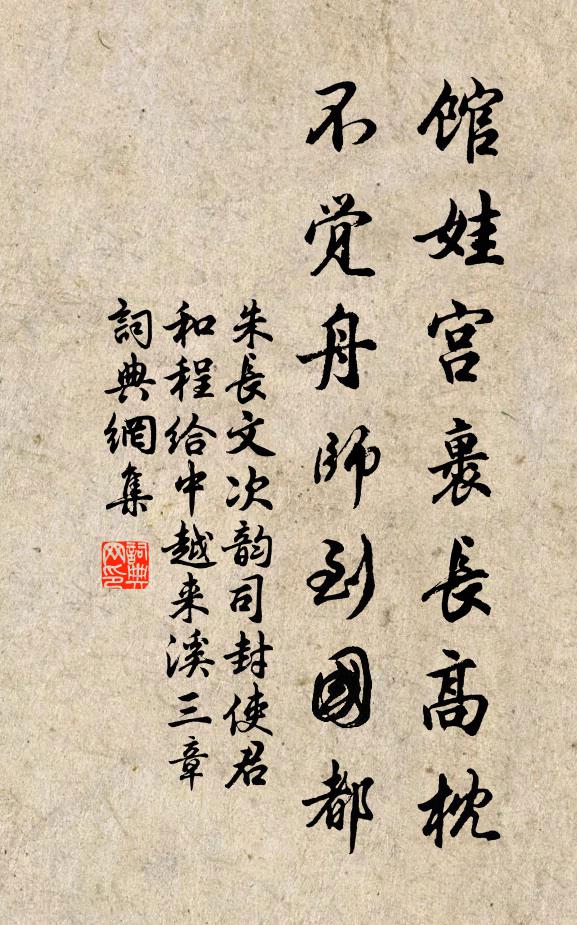 馆娃宫裏長高枕
不觉舟師到國都
朱長文次韵司封使君
和程给中越来溪三章
詞典網集
詞典
网印